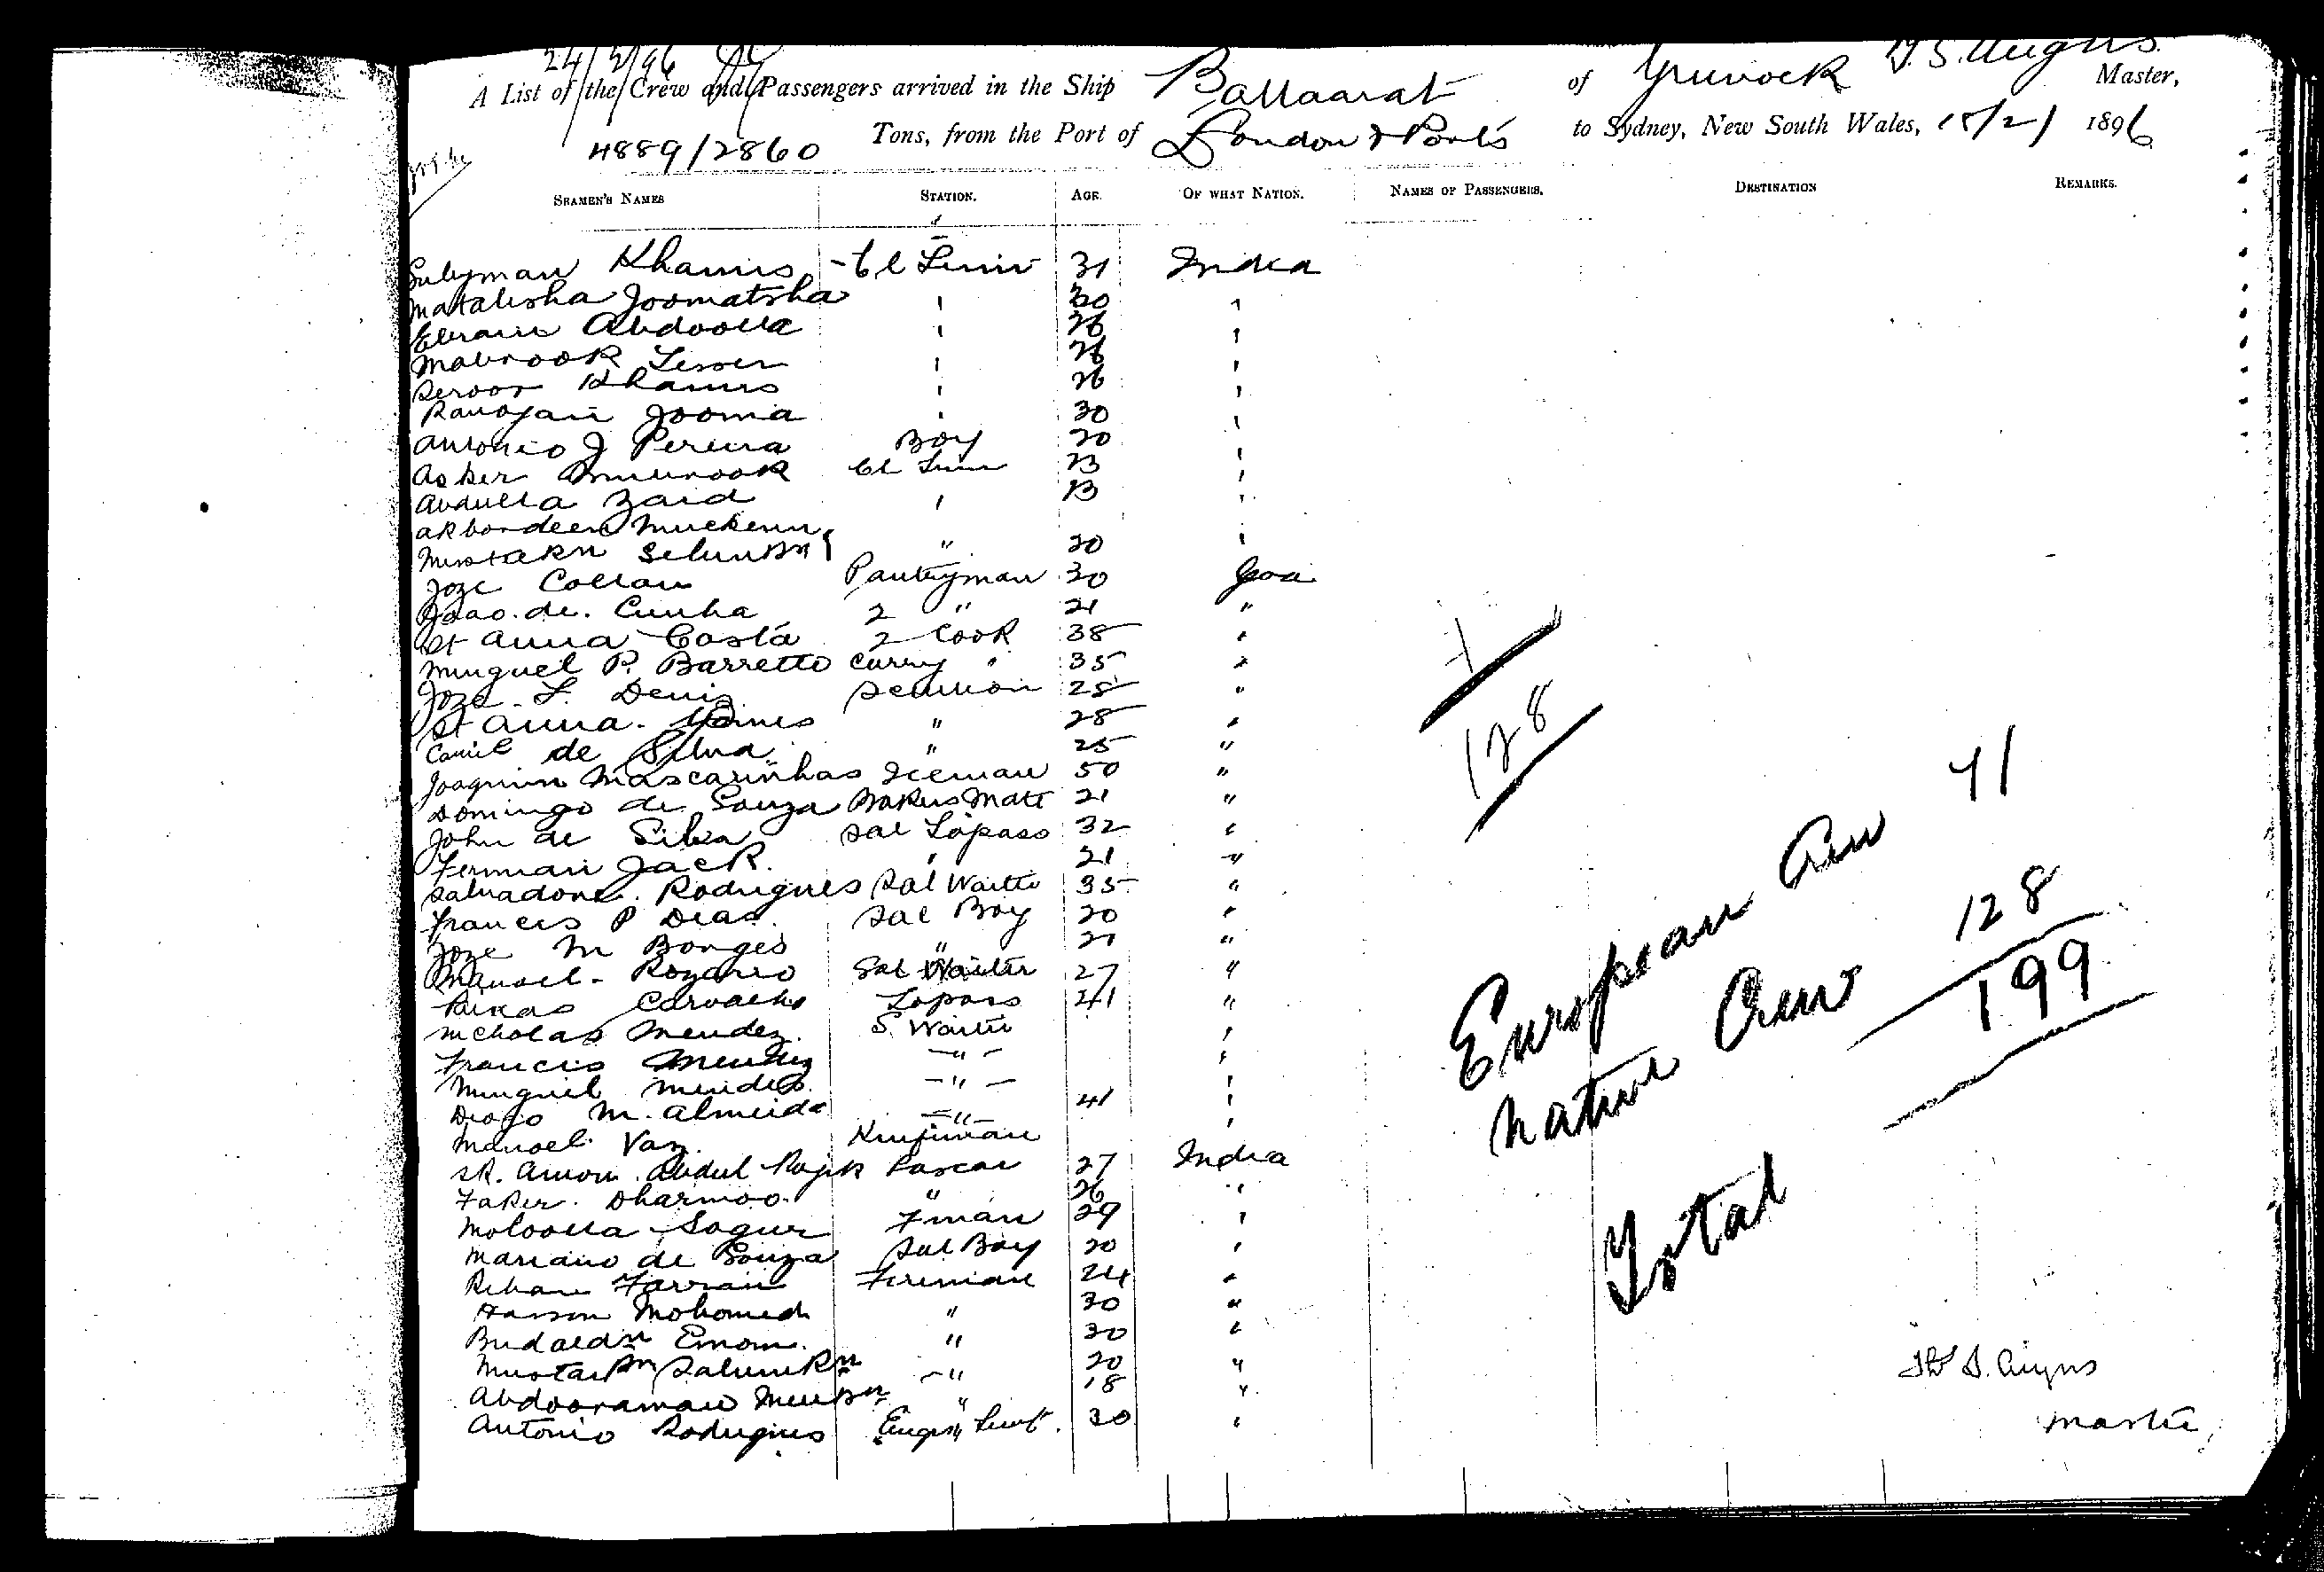 24/2/96
A List of the Crew and Passengers arrived in the Ship Ballaarat of Greenock T. S. Angus Master,
4889/2860 Tons, from the Port of London & Ports to Sydney, New South Wales, 18/2/ 1896
SEAMEN'S NAMES STATION. AGE. OF WHAT NATION. NAMES OF PASSENGERS. DESTINATION REMARKS.
Sulyman Khamis 31 India
Matalisha Joomatsha 30 "
Ebraim Abdoolla 26 "
Mabrook 26 "
Seroor Khamis 26 "
Ramojan Jooma 30 "
Antonio J Pereira Boy 20 "
Asker 23 "
Abdulla Zaid " 23 "
Akbordeen
" 20 "
Joze Collaw Pantryman 30 Goa
Joao. de. Cunha 2 " 21 "
St Anna Costa 2 Cook 38 "
Minguel P. Barretto Curry " 35 "
Joze F. Denis Scullion 28 "
St Anna. Gomes " 28 "
de Silva " 25 "
Joaquim Mascarinhas Iceman 50 "
Domingo de Souza Bakers Mate 21 "
John de Silva Sal Topass 32 "
Jack " 21 "
Salvadone. Rodrigues Sal Waiter 35 "
Francis P Dias. Sal Boy 20 "
Joze M Borges " 21 "
Manoel - Rozario Sal Waiter 27 "
Carvalho Topass 41 "
Nicholas Mendez. S. Waiter "
Francis Mendez - " - "
Minguel Mendes. - " - "
Diogo M. Almeida - " - 41 "
Manoel Vaz. "
Abdul Lascar 27 India
Faker. Dharmoo. " 26 "
Moloolla Fman 29 "
Mariano de Souza Sal Boy 20 "
Rehan Farran Fireman 24 "
Hasson Mohomed " 30 "
Emom. " 30 "
- " 20 "
" 18 "
Antonio Rodrigues 30 "
128
European Crew 71
Native Crew 128
Total 199
T. S. Angus
Master